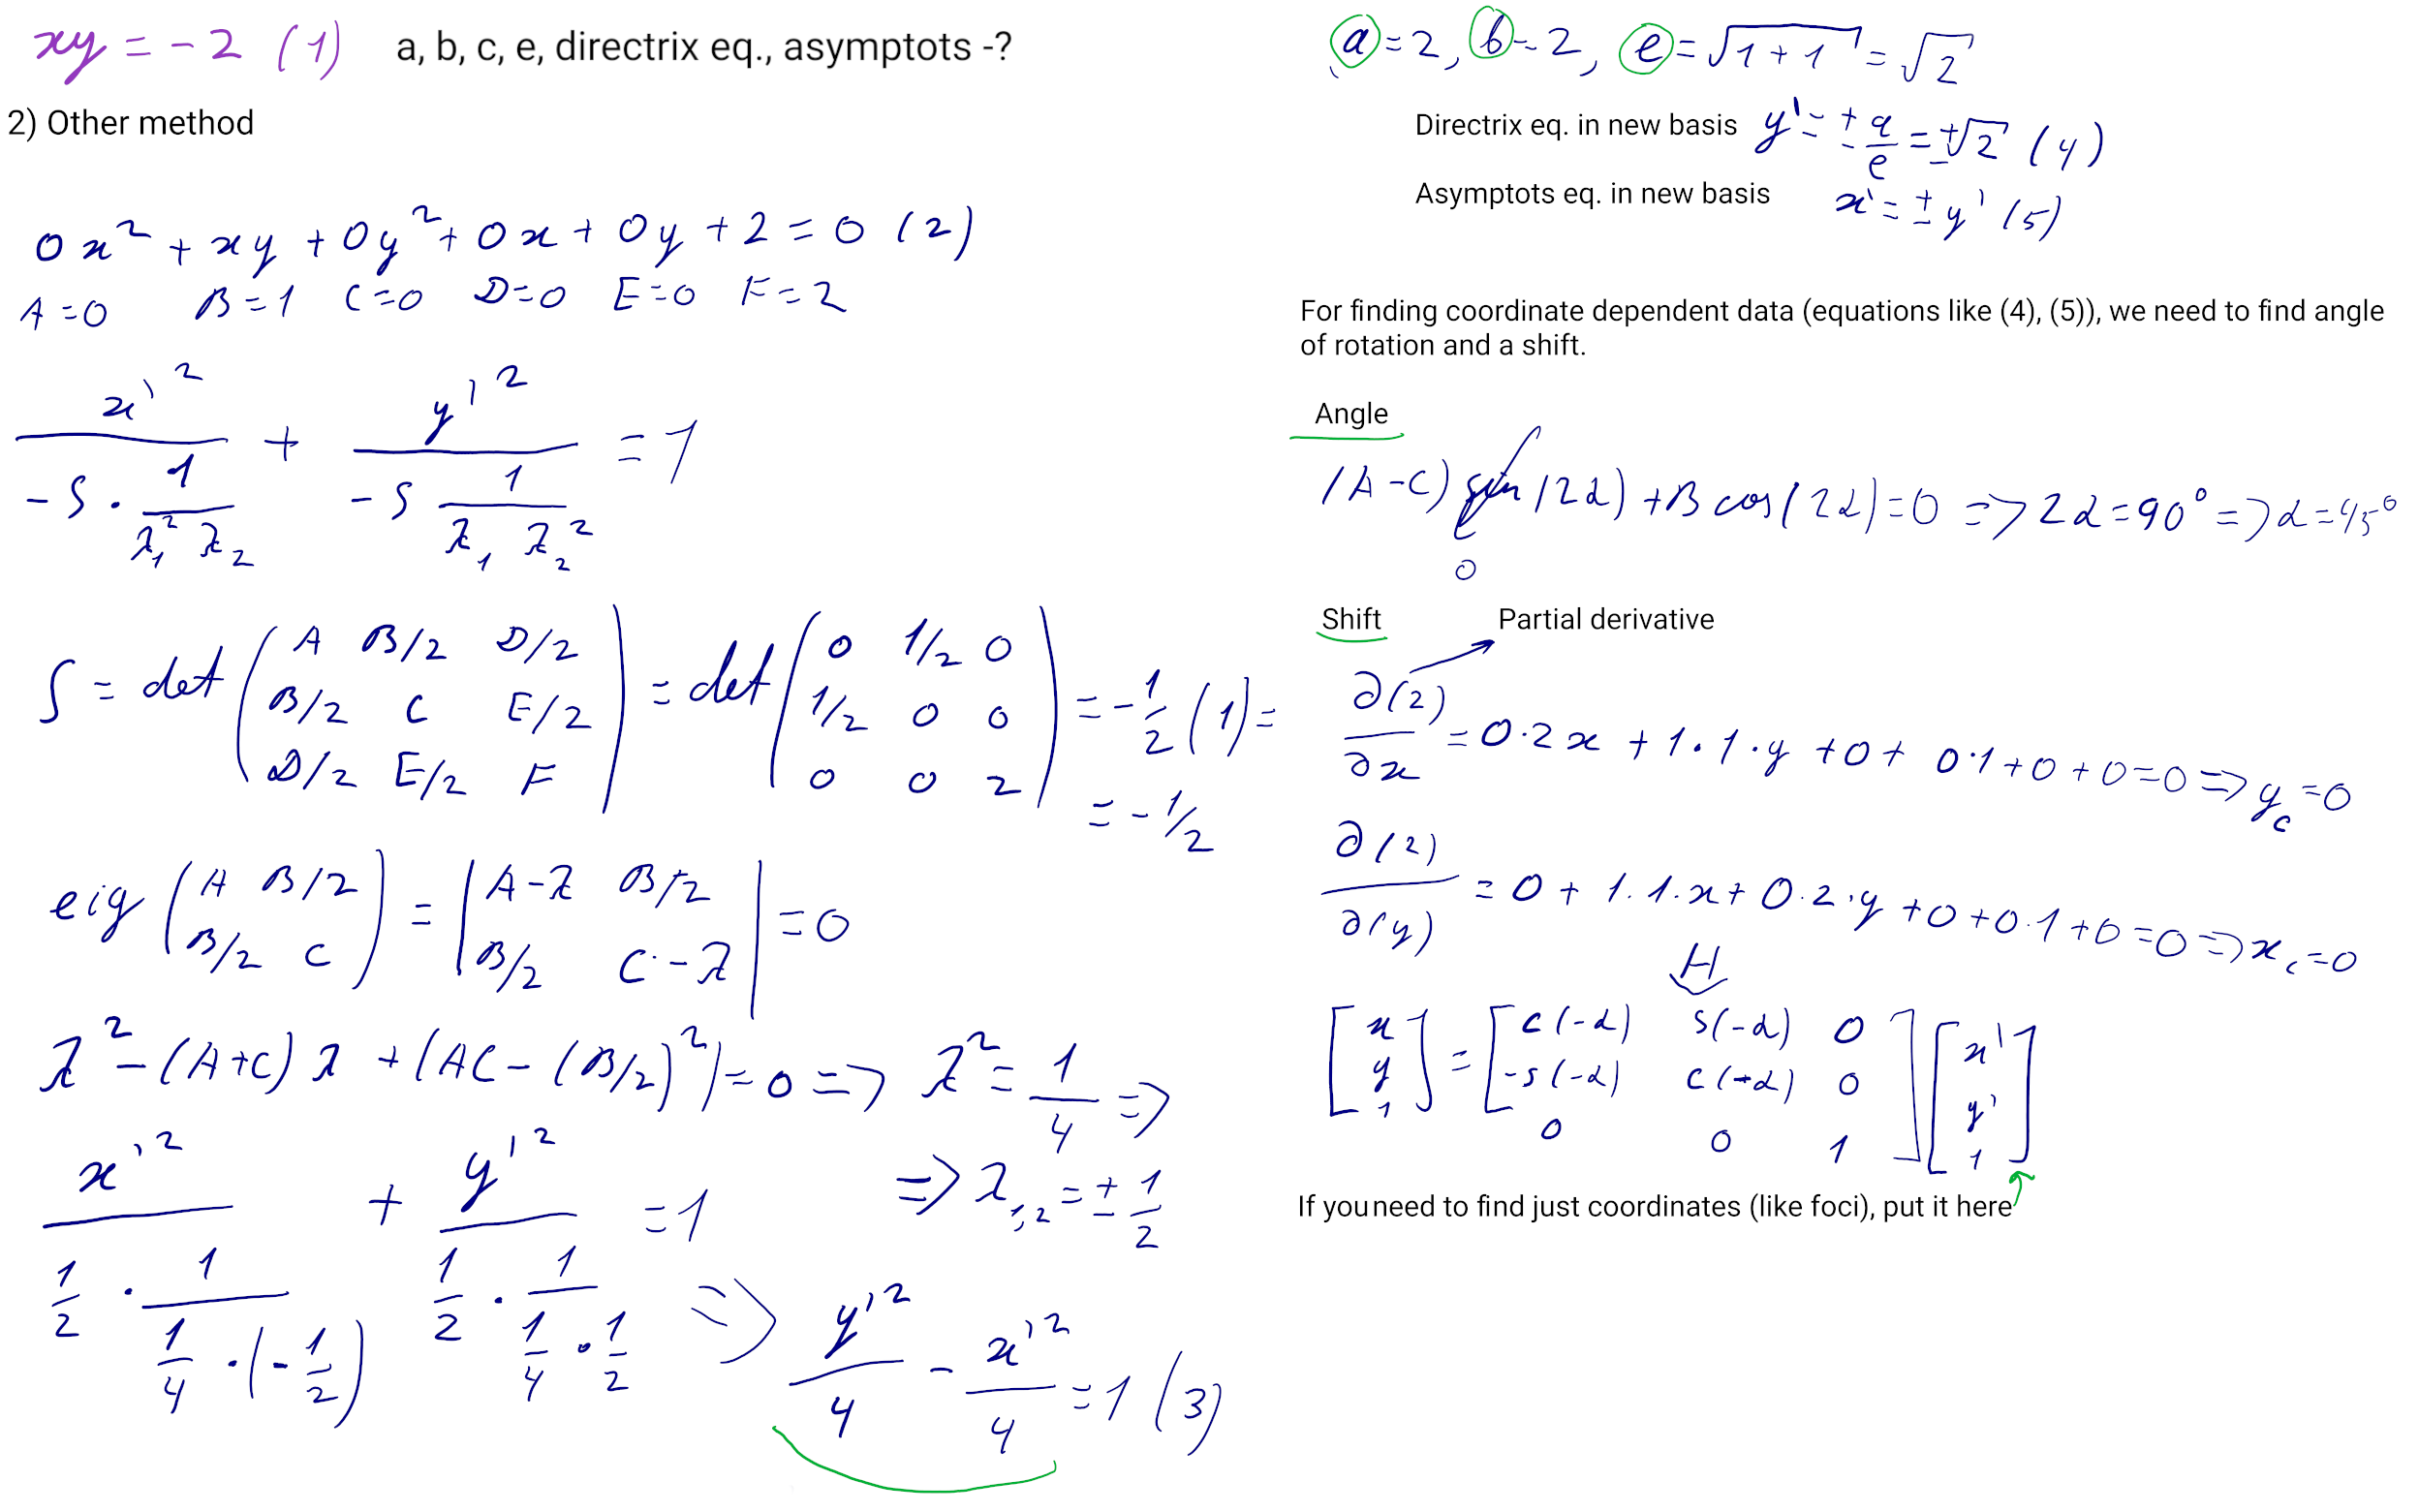 xy = -2 (1) a, b, c, e, directrix eq., asymptots -?
2) Other method
0x² + xy + 0y² + 0x + 0y + 2 = 0 (2)
A=0 B=1 C=0 D=0 E=0 F=2
x'²/(-S · 1/(λ₁² λ₂)) + y'²/(-S 1/(λ₁ λ₂²)) = 1
S = det (A B/2 D/2; B/2 C E/2; D/2 E/2 F) = det (0 1/2 0; 1/2 0 0; 0 0 2) = -1/2 (1) =
= -1/2
eig (A B/2; B/2 C) = |A-λ B/2; B/2 C-λ| = 0
λ² - (A+C) λ + (AC - (B/2)²) = 0 => λ² = 1/4 =>
=> λ₁,₂ = ± 1/2
x'²/(1/2 · 1/(1/4 · (-1/2))) + y'²/(1/2 · 1/(1/4 · 1/2)) = 1
=> y'²/4 - x'²/4 = 1 (3)
a = 2, b = 2, e = √(1+1) = √2
Directrix eq. in new basis y' = ± a/e = ±√2 (4)
Asymptots eq. in new basis x' = ± y' (5)
For finding coordinate dependent data (equations like (4), (5)), we need to find angle
of rotation and a shift.
Angle
(A-C) sin(2α) + B cos(2α) = 0 => 2α = 90° => α = 45°
0
Shift Partial derivative
∂(2)/∂x = 0·2x + 1·1·y + 0 + 0·1 + 0 + 0 = 0 => y_c = 0
∂(2)/∂(y) = 0 + 1·1·x + 0·2·y + 0 + 0·1 + 0 = 0 => x_c = 0
H
[x; y; 1] = [c(-α) s(-α) 0; -s(-α) c(-α) 0; 0 0 1] [x'; y'; 1]
If you need to find just coordinates (like foci), put it here